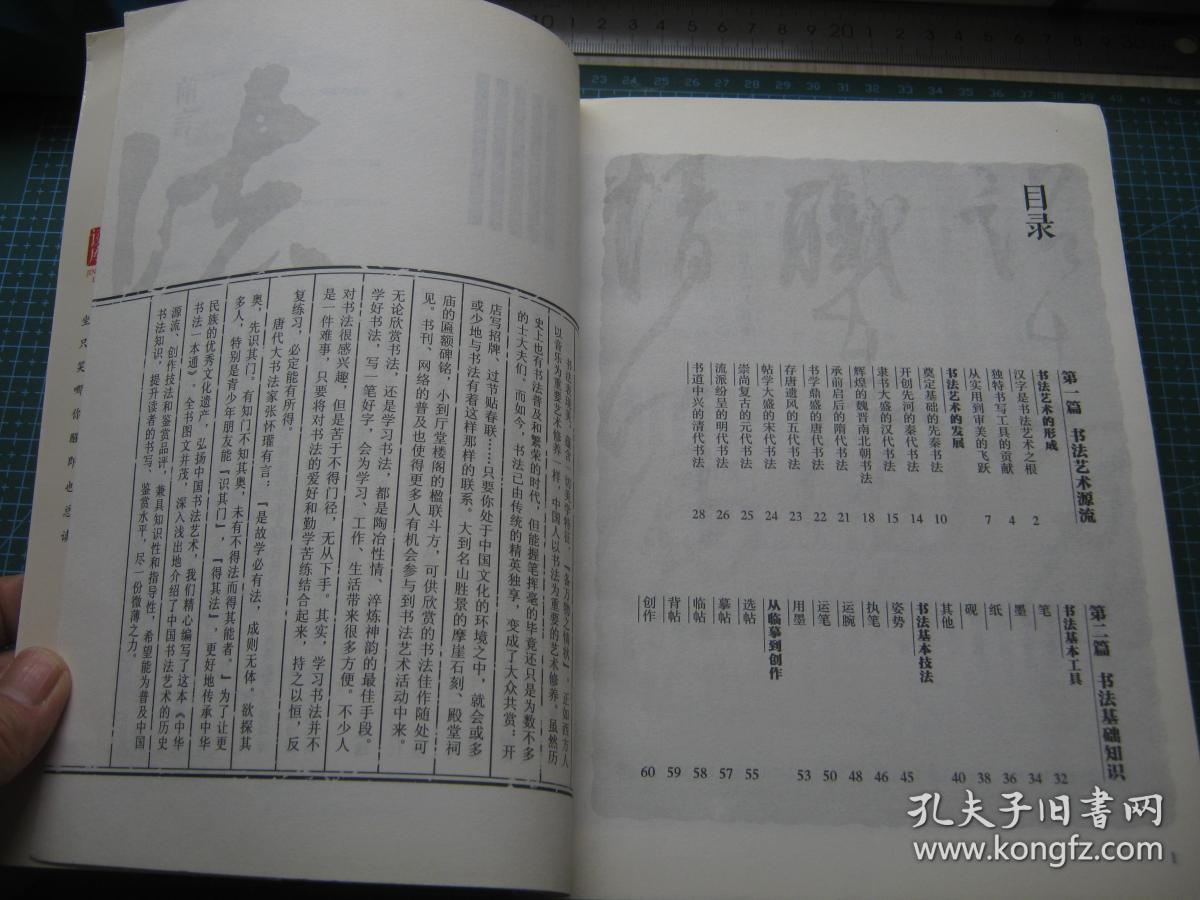 法
书法表现美，蕴含一切美学特征，“备万物之情状”。正如西方人
以音乐为重要艺术修养一样，中国人以书法为重要的艺术修养。虽然历
史上也有书法普及和繁荣的时代，但能握笔挥毫的毕竟还只是为数不多
的士大夫们，而如今，书法已由传统的精英独享，变成了大众共赏：开
店写招牌、过节贴春联……只要你处于中国文化的环境之中，就会或多
或少地与书法有着这样那样的联系。大到名山胜景的摩崖石刻、殿堂祠
庙的匾额碑铭，小到厅堂楼阁的楹联斗方，可供欣赏的书法佳作随处可
见。书刊、网络的普及也使得更多人有机会参与到书法艺术活动中来。
无论欣赏书法，还是学习书法，都是陶冶性情、淬炼神韵的最佳手段。
学好书法，写一笔好字，会为学习、工作、生活带来很多方便。不少人
对书法很感兴趣，但是苦于不得门径，无从下手。其实，学习书法并不
是一件难事，只要将对书法的爱好和勤学苦练结合起来，持之以恒，反
复练习，必定能有所得。
唐代大书法家张怀瓘有言：“是故学必有法，成则无体。欲探其
奥，先识其门。有知门不知其奥，未有不得法而得其能者。”为了让更
多人，特别是青少年朋友能“识其门”，“得其法”，更好地传承中华
民族的优秀文化遗产，弘扬中国书法艺术，我们精心编写了这本《中华
书法一本通》。全书图文并茂，深入浅出地介绍了中国书法艺术的历史
源流、创作技法和鉴赏品评，兼具知识性和指导性，希望能为普及中国
书法知识，提升读者的书写、鉴赏水平，尽一份微薄之力。
目录
第一篇 书法艺术源流
书法艺术的形成
汉字是书法艺术之根 2
独特书写工具的贡献 4
从实用到审美的飞跃 7
书法艺术的发展
奠定基础的先秦书法 10
开创先河的秦代书法 14
隶书大盛的汉代书法 15
辉煌的魏晋南北朝书法 18
承前启后的隋代书法 21
书学鼎盛的唐代书法 22
存唐遗风的五代书法 23
帖学大盛的宋代书法 24
崇尚复古的元代书法 25
流派纷呈的明代书法 26
书道中兴的清代书法 28
第二篇 书法基础知识
书法基本工具
笔 32
墨 34
纸 36
砚 38
其他 40
书法基本技法
姿势 45
执笔 46
运腕 48
运笔 50
用墨 53
从临摹到创作
选帖 55
摹帖 57
临帖 58
背帖 59
创作 60
1
孔夫子旧书网
www.kongfz.com